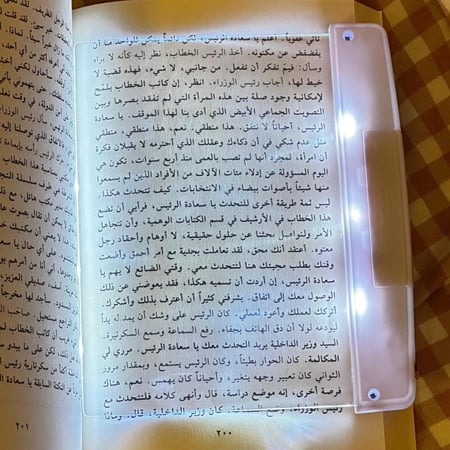 تالي عفوياً. أعلم يا سعادة الرئيس، لكن دائماً يمكن للواحد منا أن
يفضفض عن مكنونه. أخذ الرئيس الخطاب، نظر إليه كأنه لا يراه
وسأل: فيمَ تفكر أن تفعل. من جانبي، لا شيء، فهذه قضية لا
خيط لها، أجاب رئيس الوزراء. انظر، إن كاتب الخطاب يلمّح
لإمكانية وجود صلة بين هذه المرأة التي لم تفقد بصرها وبين
التصويت الجماعي الأبيض الذي أدى بنا لهذا الموقف. يا سعادة
الرئيس، أحياناً لا نتفق. هذا منطقي. نعم، هذا منطقي، منطقي
مثل عدم شكي في أن ذكاءك وعقلك الذي أحترمه لا يقبلان فكرة
أن امرأة، لمجرد أنها لم تصب بالعمى منذ أربع سنوات، تكون هي
اليوم المسؤولة عن إدلاء مئات الآلاف من الأفراد الذين لم يسمعوا
منها شيئاً بأصوات بيضاء في الانتخابات. كيف تتحدث هكذا.
ليس ثمة طريقة أخرى للتحدث يا سعادة الرئيس، فرأيي أن تضع
هذا الخطاب في الأرشيف في قسم الكتابات الوهمية، وأن نتجاهل
الأمر ولنواصل بحثنا عن حلول حقيقية، لا أوهام وأحقاد رجل
معتوه. أعتقد أنك محق، لقد تعاملت بجدية مع أمر أحمق وأضعت
وقتك بطلب مجيئك هنا لنتحدث معي. وقتي الضائع لا يهم يا
سعادة الرئيس، إن أردت أن نسميه هكذا، فقد يعوضني عن ذلك
الوصول معك إلى اتفاق. يشرفني كثيراً أن أعترف بذلك وأشكرك.
أتركك لعملك وأعود لعملي. كان الرئيس على وشك أن يمد له يداً
ليودعه لولا أن دق الهاتف بجفاء. رفع السماعة وسمع السكرتيرة.
السيد وزير الداخلية يريد التحدث معك يا سعادة الرئيس. مرري لي
المكالمة. كان الحوار بطيئاً، وكان الرئيس يستمع، وبمقدار مرور
الثواني كان تعبير وجهه يتغير، وأحياناً كان يهمس. نعم، هناك
فرصة أخرى، إنه موضع دراسة، قال وأنهى كلامه فلتتحدث مع
رئيس الوزراء. وضع السماعة. كان وزير الداخلية، قال. وماذا
٢٠٠
٢٠١